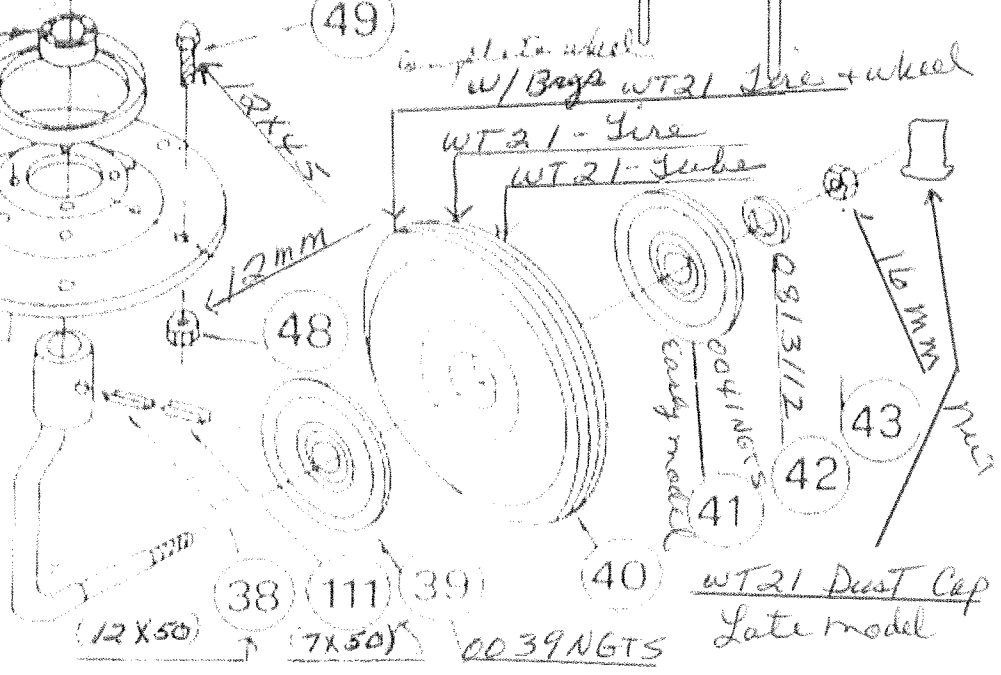 49
complete wheel
W/ Brgs WT21 Tire + wheel
WT21-Tire
WT21-Tube
12mm
48
16mm
0813112
0041NGTS
early model
43
Nut
42
41
40
38
111
39
(12X50)
(7X50)
0039NGTS
WT21 Dust Cap
Late model